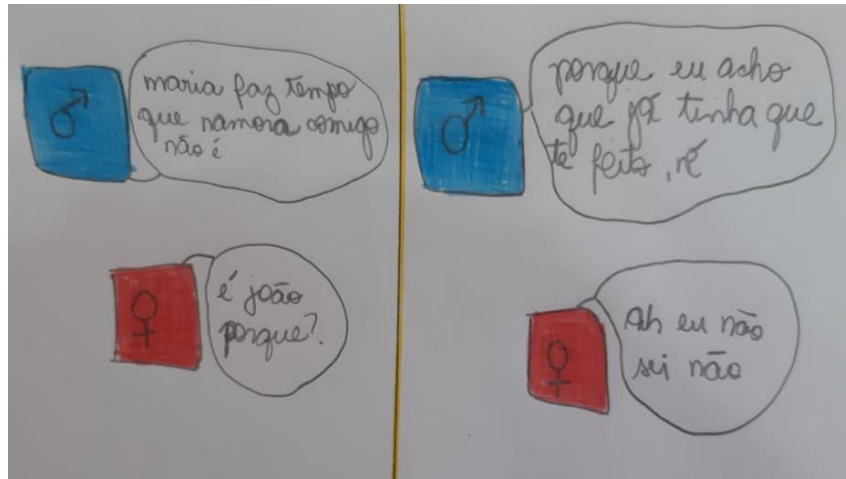 maria faz tempo
que namora comigo
não é
é joão
porque?
porque eu acho
que já tinha que
te feito, né
Ah eu não
sei não